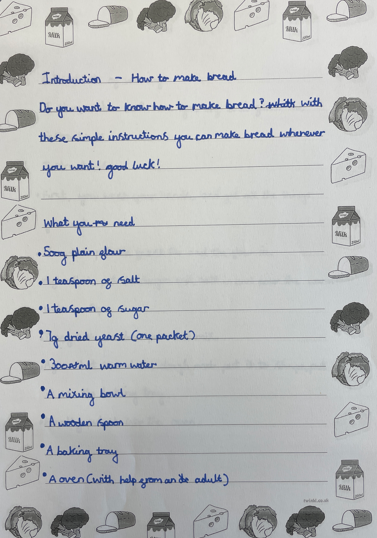 Introduction - How to make bread
Do you want to know how to make bread? with
these simple instructions you can make bread wherever
you want! good luck!
What you need
• 500g plain flour
• 1 teaspoon of salt
• 1 teaspoon of sugar
• 7g dried yeast (one packet)
• 300ml warm water
• A mixing bowl
• A wooden spoon
• A baking tray
• A oven (with help from an adult)